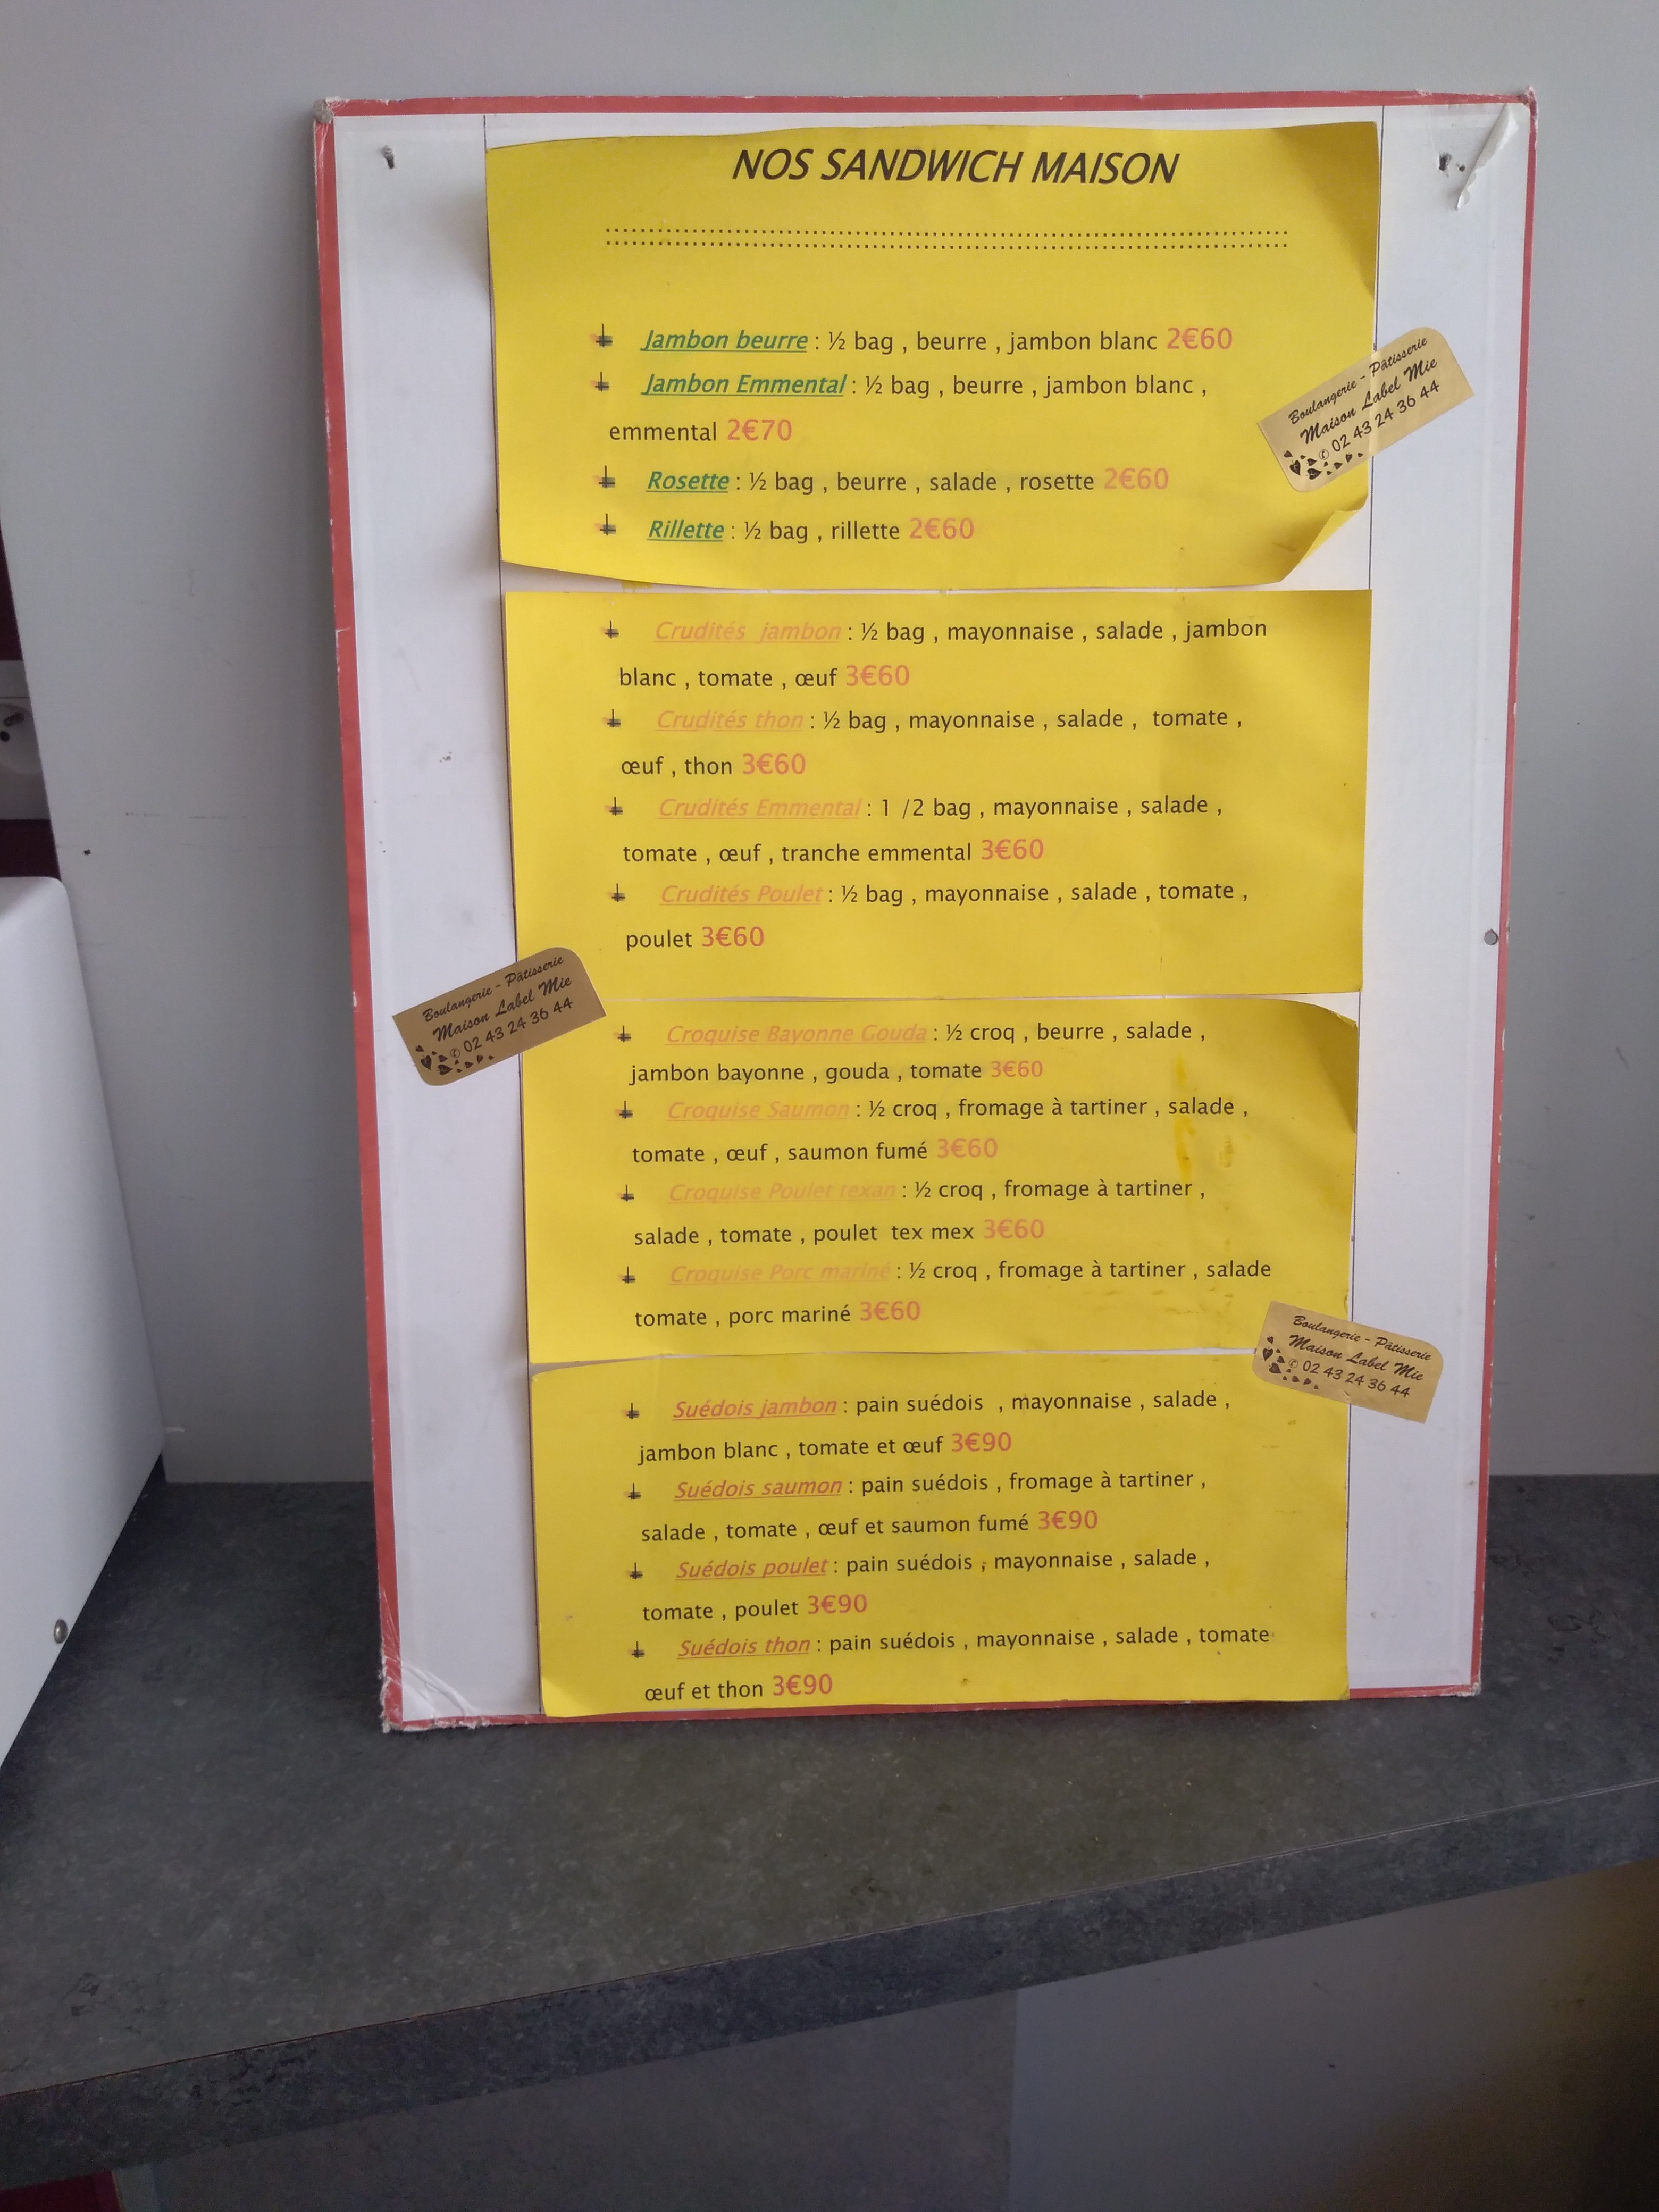 NOS SANDWICH MAISON
Jambon beurre : ½ bag , beurre , jambon blanc 2€60
Jambon Emmental : ½ bag , beurre , jambon blanc ,
emmental 2€70
Rosette : ½ bag , beurre , salade , rosette 2€60
Rillette : ½ bag , rillette 2€60
Boulangerie - Pâtisserie
Maison Label Mie
✆ 02 43 24 36 44
Crudités jambon : ½ bag , mayonnaise , salade , jambon
blanc , tomate , œuf 3€60
Crudités thon : ½ bag , mayonnaise , salade , tomate ,
œuf , thon 3€60
Crudités Emmental : 1 /2 bag , mayonnaise , salade ,
tomate , œuf , tranche emmental 3€60
Crudités Poulet : ½ bag , mayonnaise , salade , tomate ,
poulet 3€60
Boulangerie - Pâtisserie
Maison Label Mie
✆ 02 43 24 36 44
Croquise Bayonne Gouda : ½ croq , beurre , salade ,
jambon bayonne , gouda , tomate 3€60
Croquise Saumon : ½ croq , fromage à tartiner , salade ,
tomate , œuf , saumon fumé 3€60
Croquise Poulet texan : ½ croq , fromage à tartiner ,
salade , tomate , poulet tex mex 3€60
Croquise Porc mariné : ½ croq , fromage à tartiner , salade
tomate , porc mariné 3€60
Boulangerie - Pâtisserie
Maison Label Mie
✆ 02 43 24 36 44
Suédois jambon : pain suédois , mayonnaise , salade ,
jambon blanc , tomate et œuf 3€90
Suédois saumon : pain suédois , fromage à tartiner ,
salade , tomate , œuf et saumon fumé 3€90
Suédois poulet : pain suédois , mayonnaise , salade ,
tomate , poulet 3€90
Suédois thon : pain suédois , mayonnaise , salade , tomate
œuf et thon 3€90